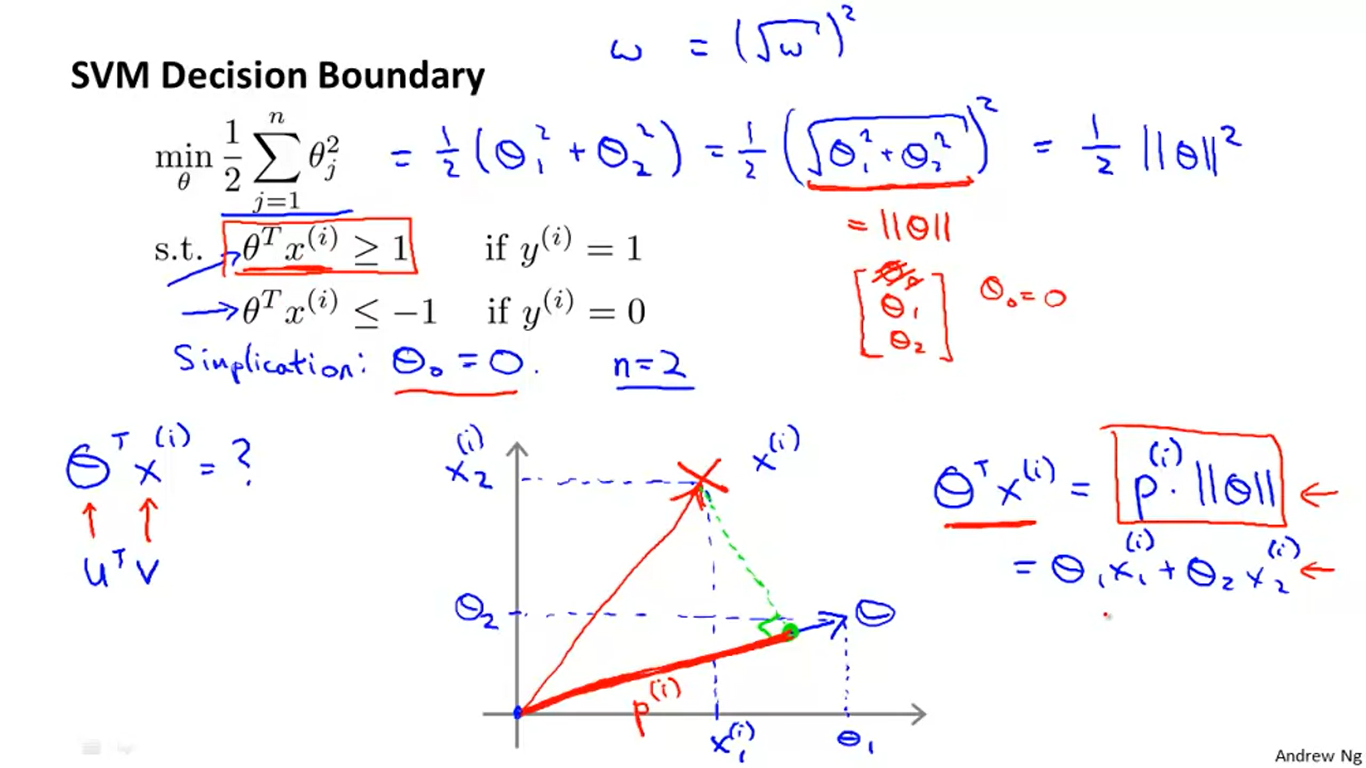 ω = (√ω)²
SVM Decision Boundary
min_θ 1/2 ∑_{j=1}^{n} θ_j² = 1/2 (Θ₁² + Θ₂²) = 1/2 (√(Θ₁² + Θ₂²))² = 1/2 ||Θ||²
= ||Θ||
s.t. θᵀx⁽ⁱ⁾ ≥ 1 if y⁽ⁱ⁾ = 1
θᵀx⁽ⁱ⁾ ≤ −1 if y⁽ⁱ⁾ = 0
[Θ₀ Θ₁ Θ₂] Θ₀ = 0
Simplication: Θ₀ = 0. n = 2
Θᵀx⁽ⁱ⁾ = ?
↑ ↑
uᵀ v
x₂⁽ⁱ⁾ x⁽ⁱ⁾
Θ₂ Θ
p⁽ⁱ⁾
x₁⁽ⁱ⁾ Θ₁
Θᵀx⁽ⁱ⁾ = p⁽ⁱ⁾ · ||Θ|| ←
= Θ₁x₁⁽ⁱ⁾ + Θ₂x₂⁽ⁱ⁾ ←
Andrew Ng